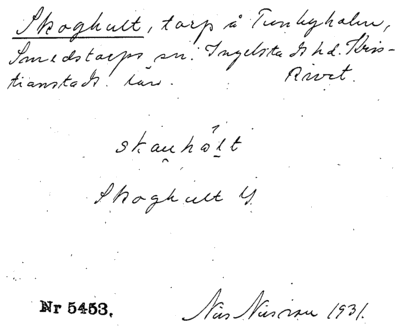 Skoghult, torp å Tunbyholm,
Smedstorps sn. Ingelstads hd. Kris-
tianstads län. Rivet.
skauhàlt
Skoghult G
Nr 5453. Nils Nilsson 1931.